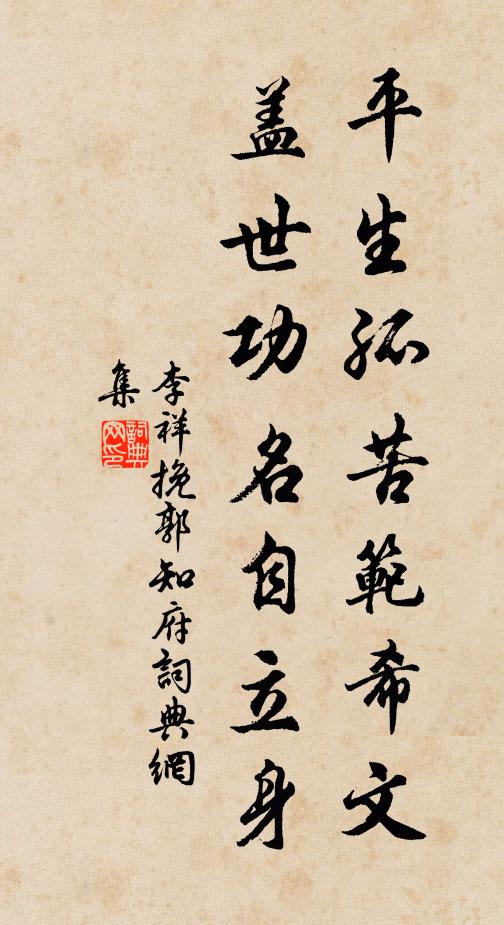 平生孤苦範希文
盖世功名自立身
李祥挽郭知府詞典網
集
詞典
网印